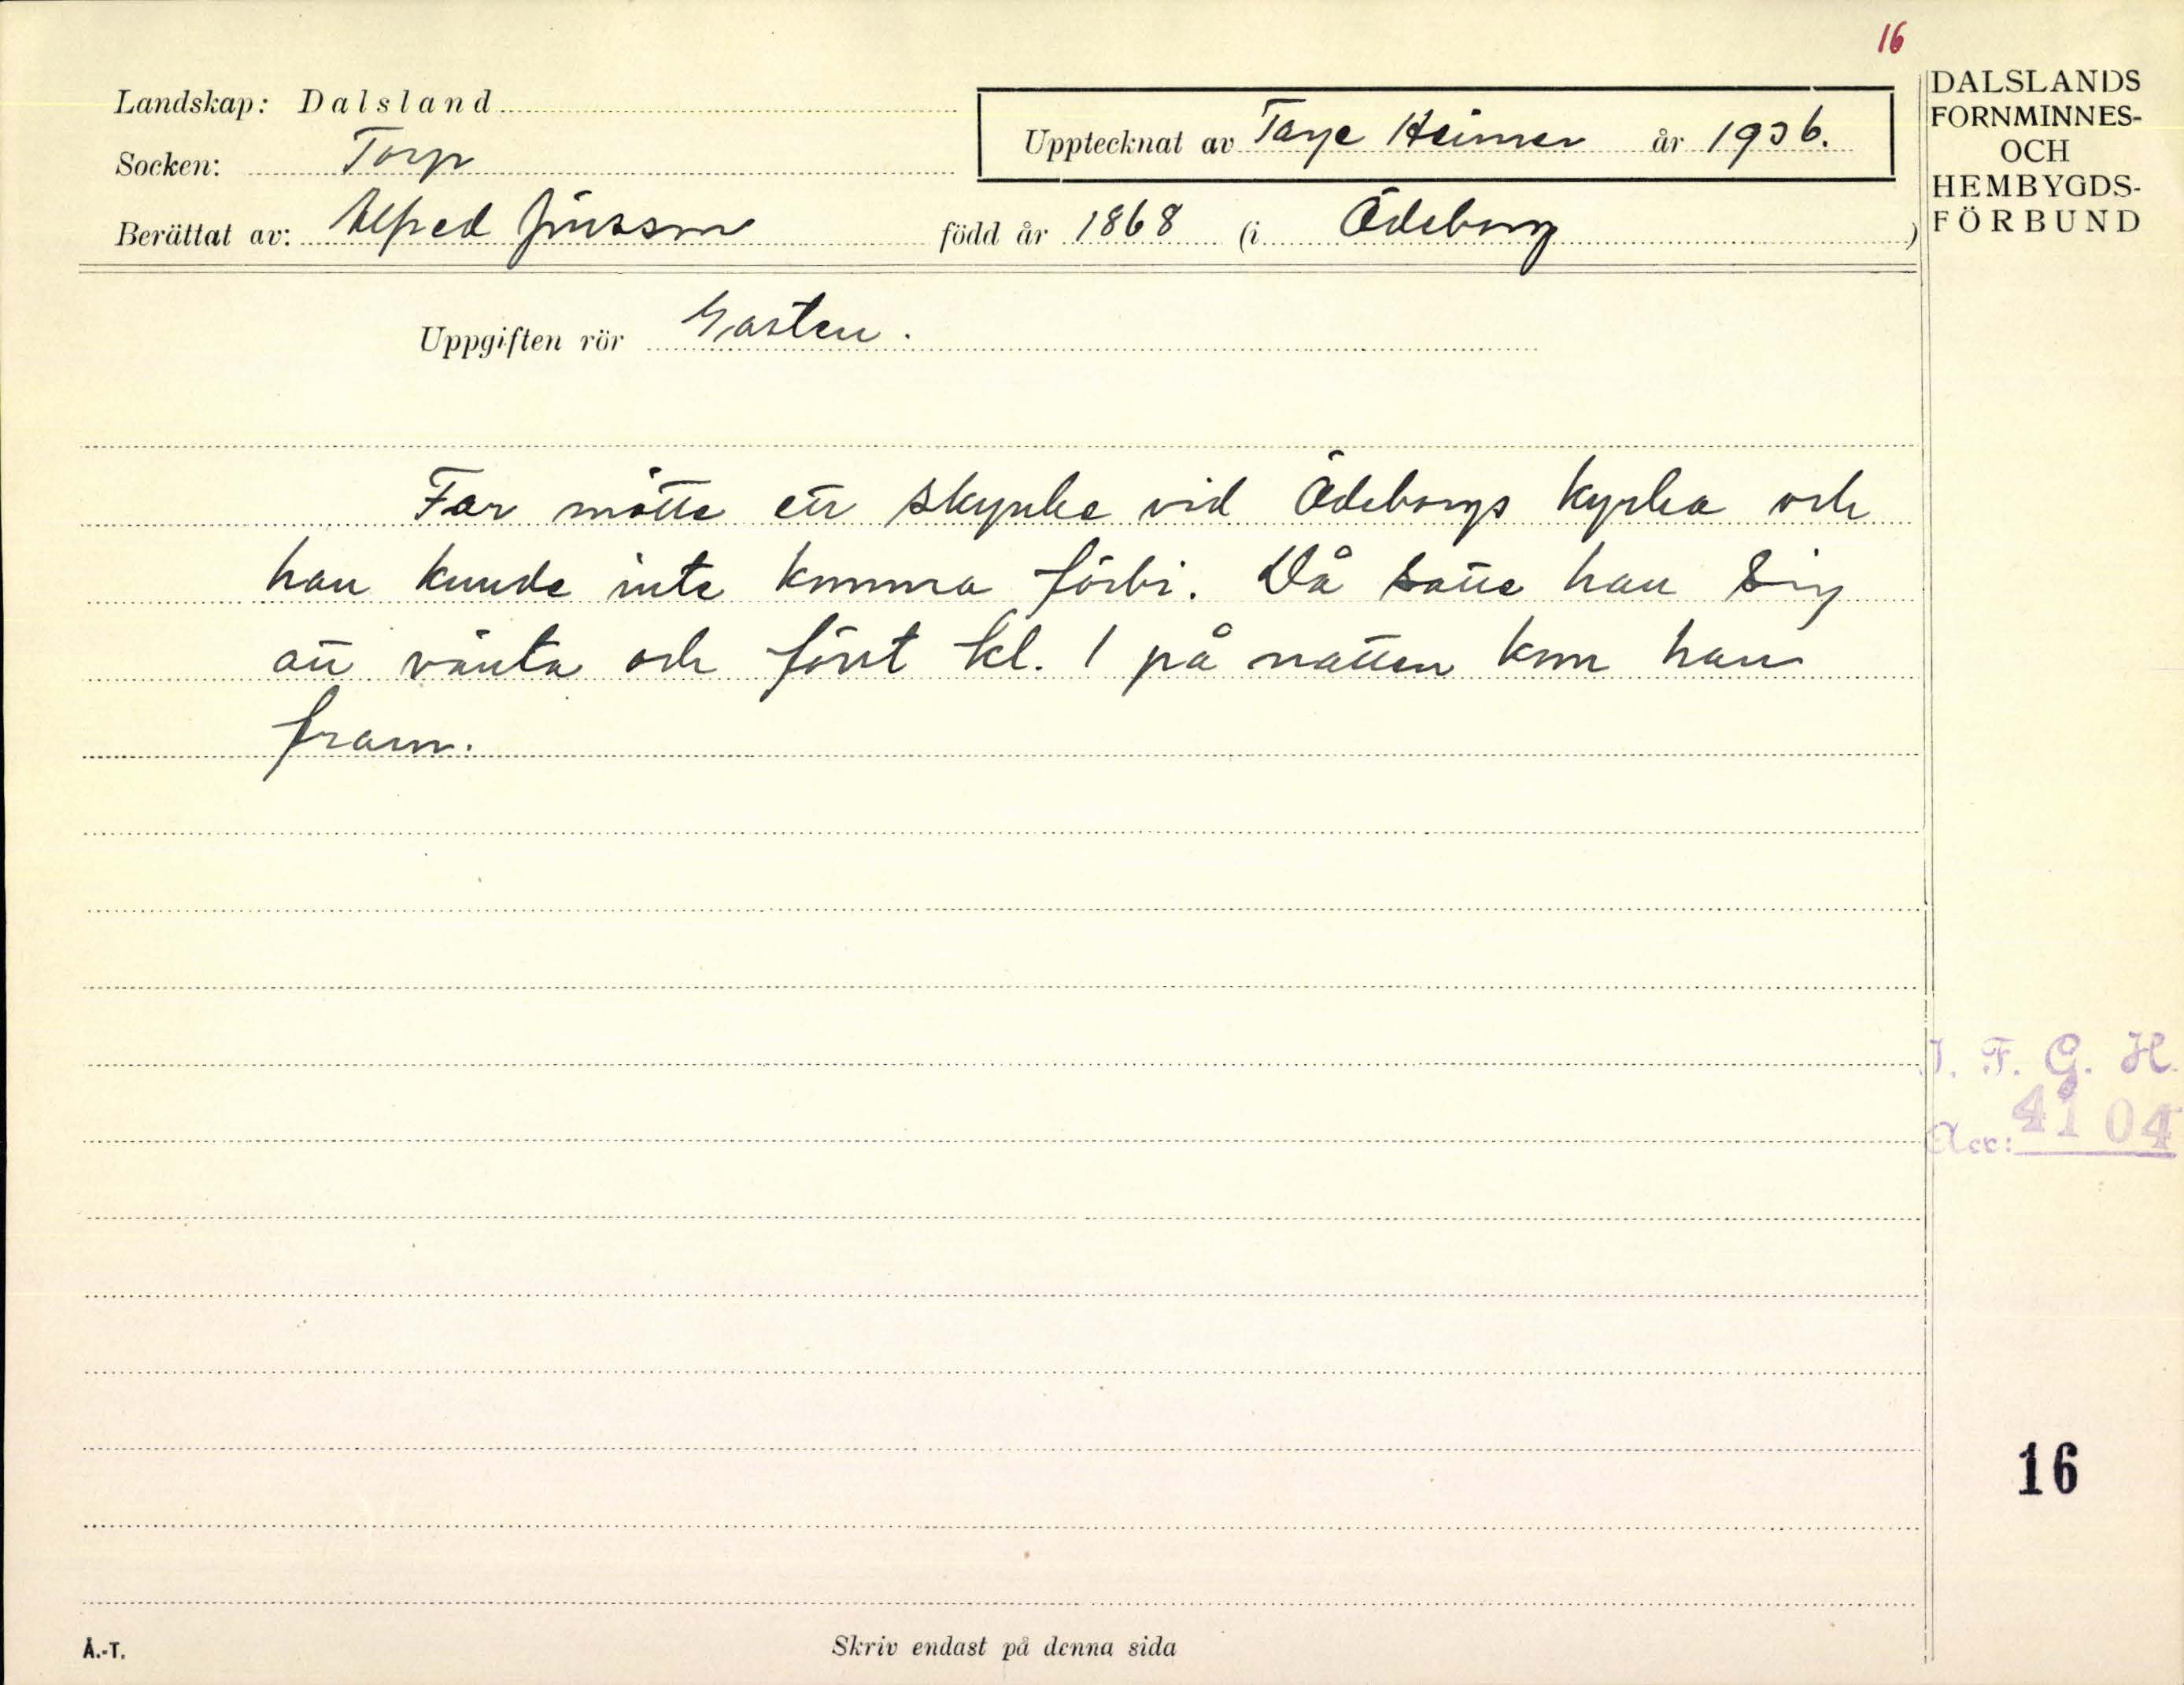 16
Landskap: Dalsland
Socken: Torp
Upptecknat av Tage Heimer år 1936.
Berättat av: Alfred Jönsson född år 1868 (i Ödeborg)
DALSLANDS
FORNMINNES-
OCH
HEMBYGDS-
FÖRBUND
Uppgiften rör Gasten.
Far mötte ett skynke vid Ödeborgs kyrka och
han kunde inte komma förbi. Då satte han sig
att vänta och först kl. 1 på natten kom han
fram.
I. F. G. H.
Acc: 4104
16
Å.-T.
Skriv endast på denna sida